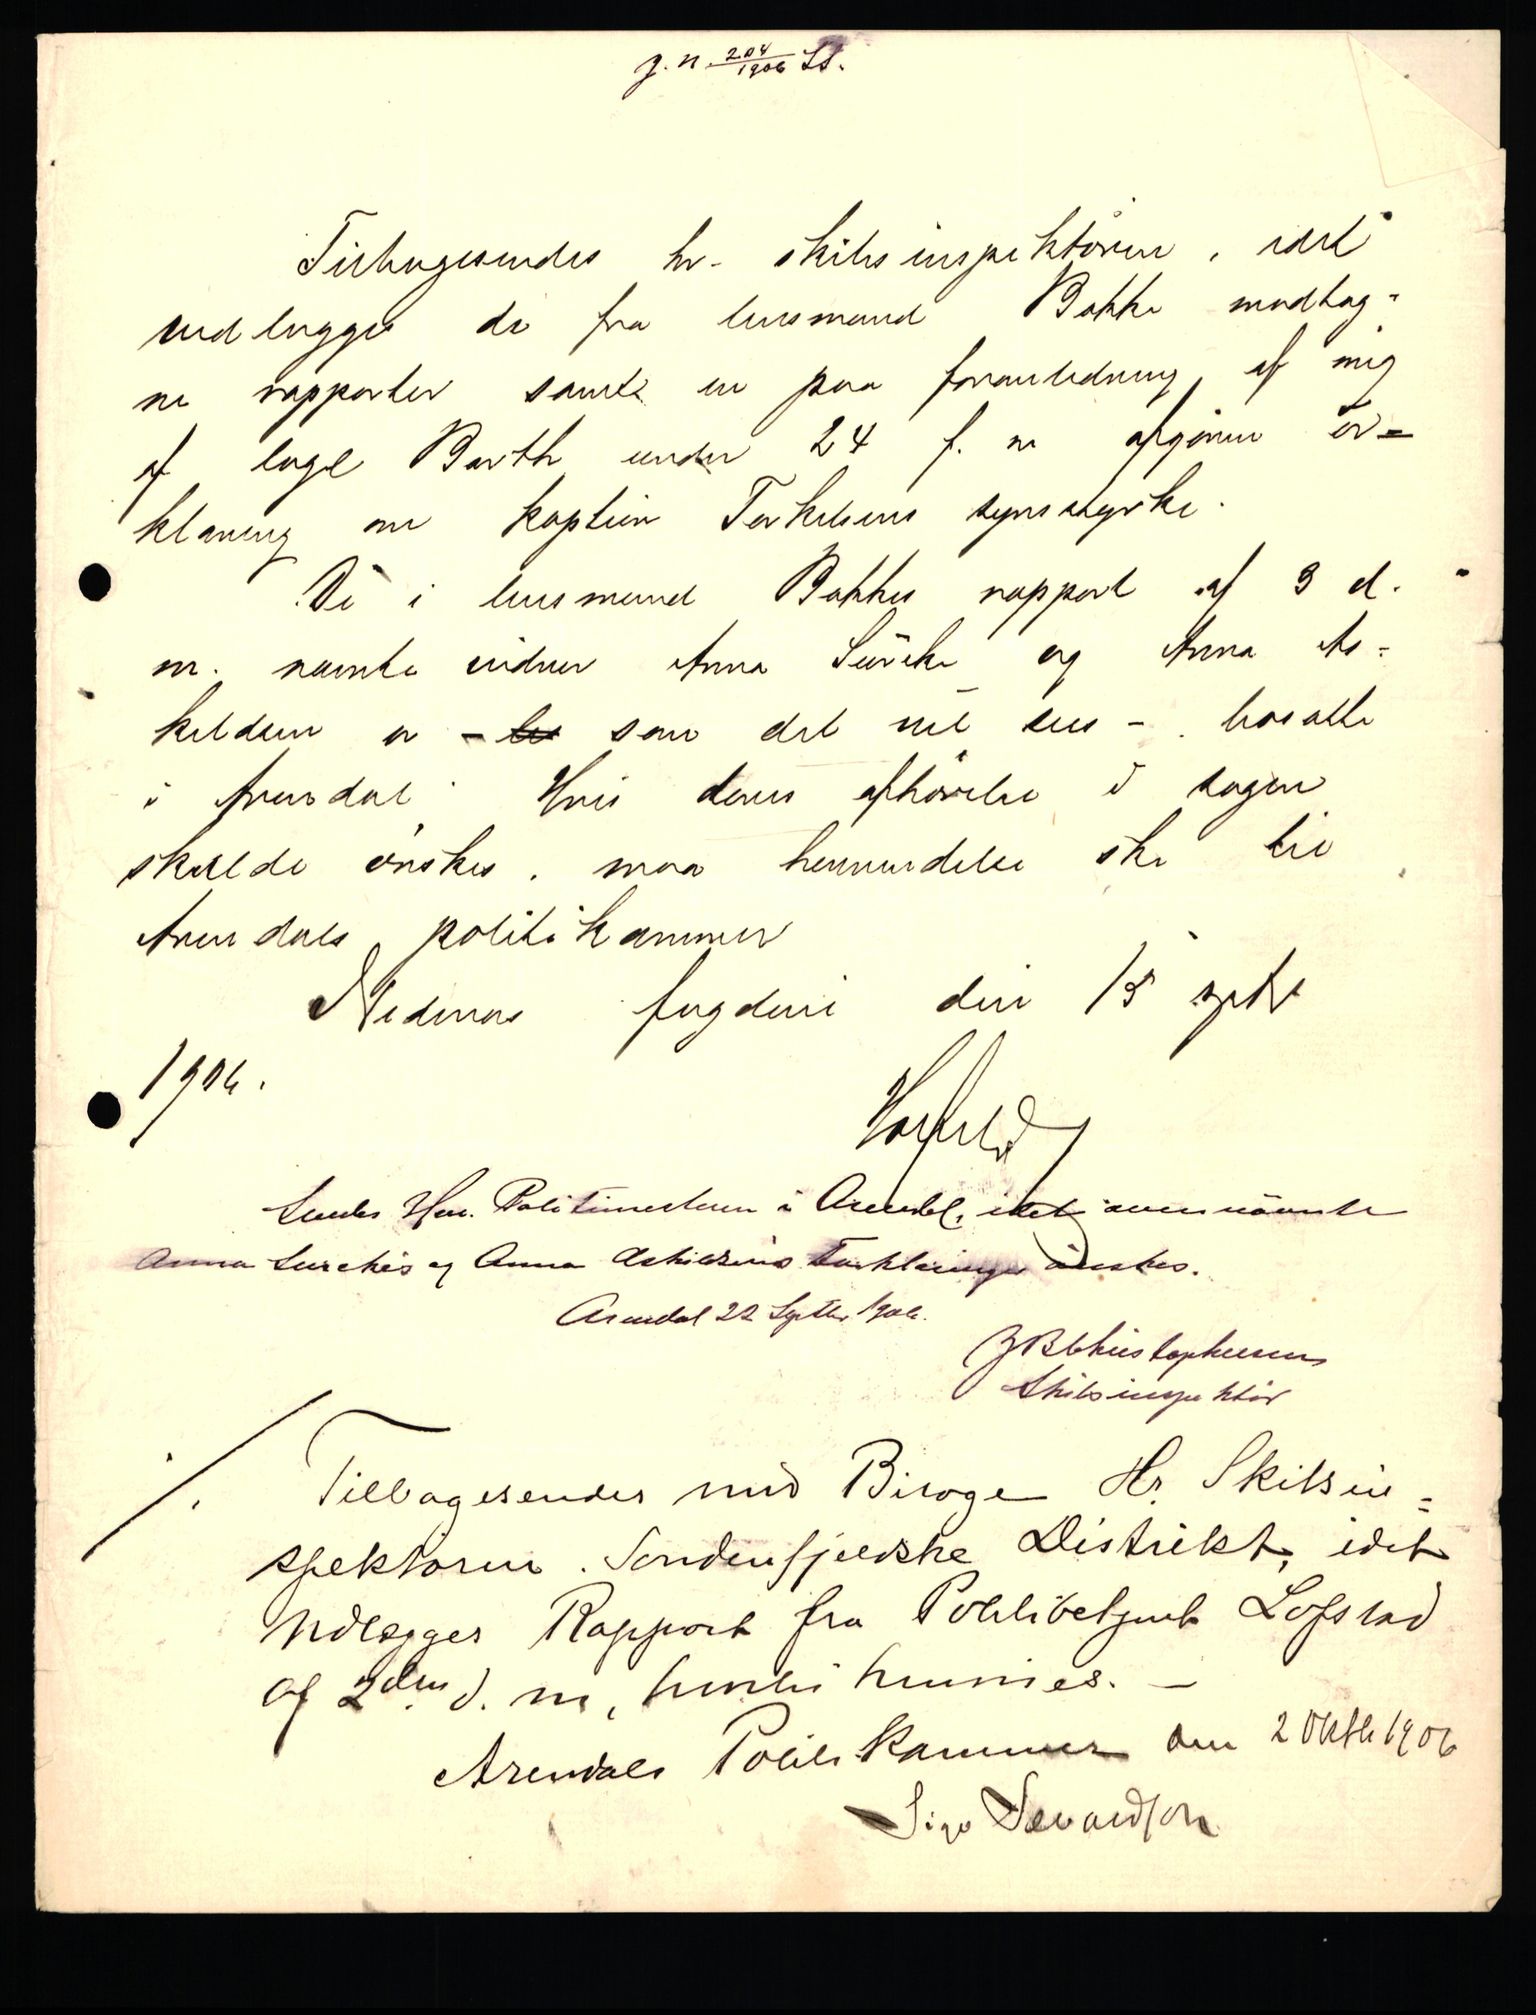 j. n. 204/1906 Ls.
Tilbagesendes hr. skibsinspektøren, idet
vedlægges de fra lensmand Bakke modtag-
ne rapporter samt en paa foranledning af mig
af læge Barth under 24 f. m. afgiven er-
klæring om kaptein Terkelsens synsstyrke.
De i lensmand Bakkes rapport af 3 d.
m. nævnte vidner Anna og Anna As-
kildsen er - som det vil sees - bosatte
i Arendal. Hvis deres afhørelse i sagen
skulde ønskes, maa henvendelse ske til
Arendals politikammer
Nedenæs fogderi den 15 septbr
1906.
Sendes Herr Politimesteren i Arendal, idet ovennævnte
Anna og Anna Askildsens Forklaringer ønskes.
Arendal 22 Septbr 1906.
J B Christophersen
Skibsinspektør
./. Tilbagesendes med Bilage Hr. Skibsin=
spektøren Søndenfjeldske Distrikt, idet
vedlægges Rapport fra Politibetjent Lofstad
af 2den d. m., hvortil henvises. -
Arendals Politikammer den 2 Oktbr 1906
Sigv Sevardson